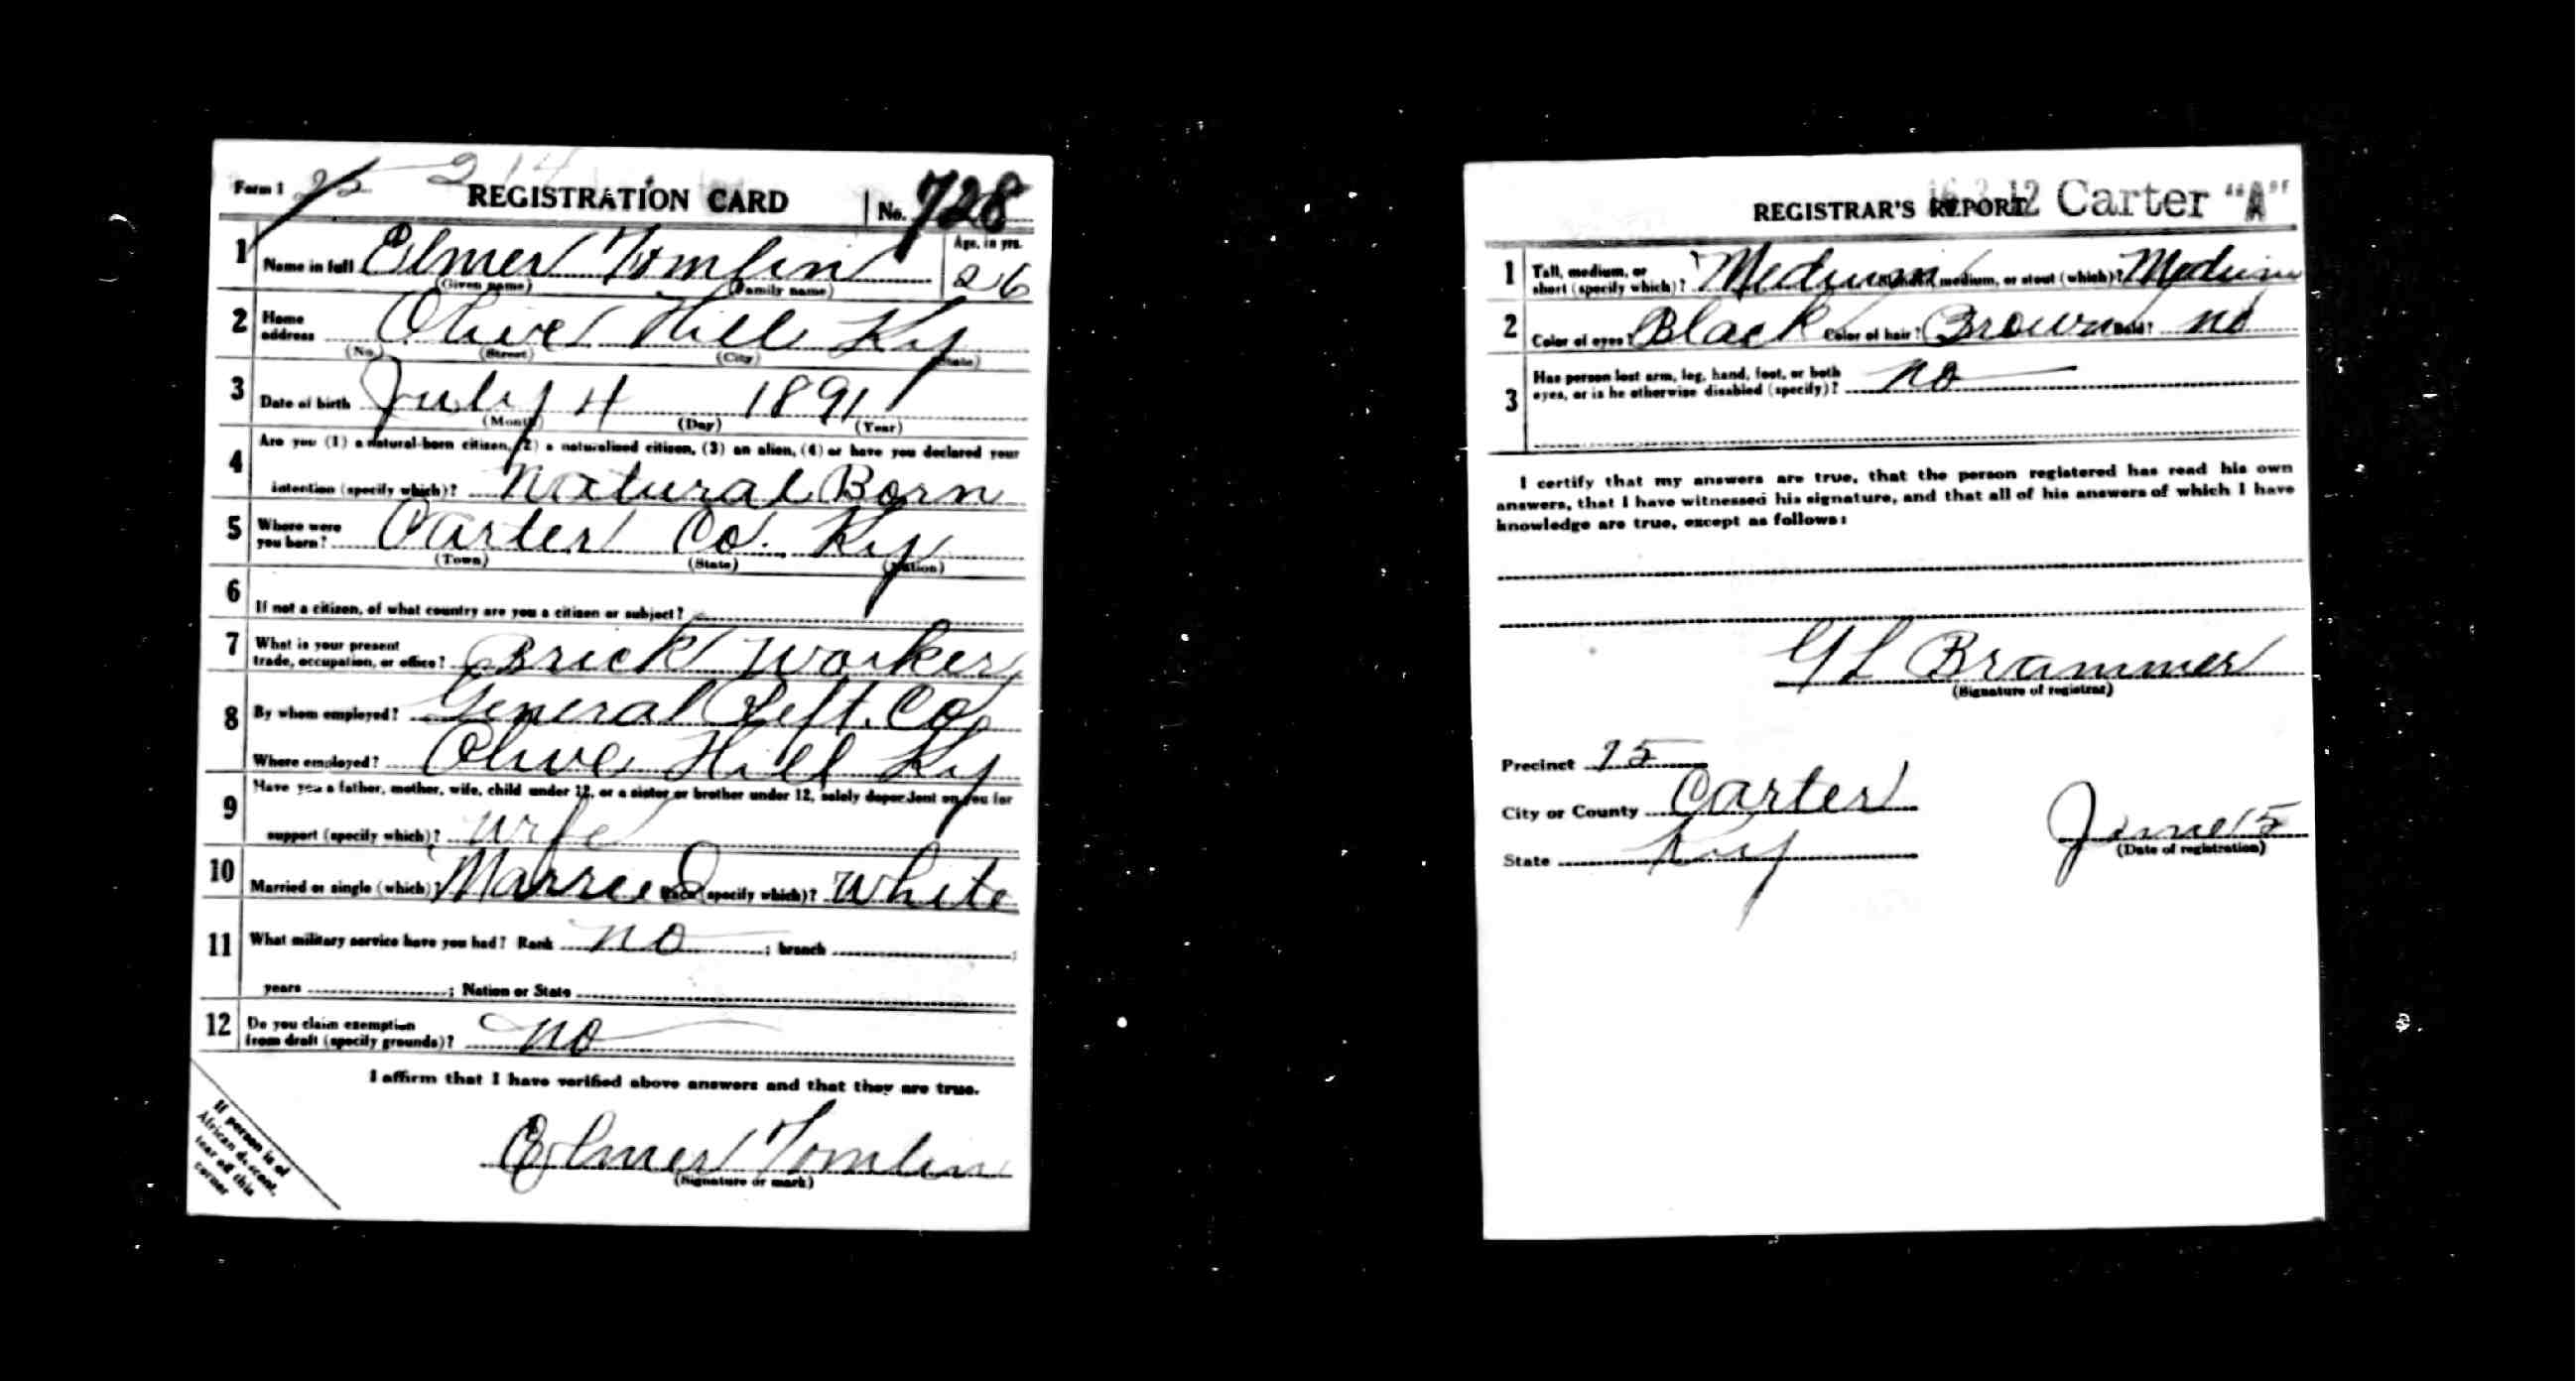 Form 1 25 214
REGISTRATION CARD No. 728
1 Name in full Elmer Tomlin Age, in yrs. 26
(Given name) (Family name)
2 Home address Olive Hill Ky
(No.) (Street) (City) (State)
3 Date of birth July 4 1891
(Month) (Day) (Year)
4 Are you (1) a natural-born citizen, (2) a naturalized citizen, (3) an alien, (4) or have you declared your
intention (specify which)? Natural Born
5 Where were you born? Carter Co. Ky
(Town) (State) (Nation)
6 If not a citizen, of what country are you a citizen or subject?
7 What is your present
trade, occupation, or office? Brick Worker
8 By whom employed? General Reft. Co,
Where employed? Olive Hill Ky
9 Have you a father, mother, wife, child under 12, or a sister or brother under 12, solely dependent on you for
support (specify which)? wife
10 Married or single (which)? Married Race (specify which)? White
11 What military service have you had? Rank no ; branch ;
years ; Nation or State
12 Do you claim exemption
from draft (specify grounds)? no
I affirm that I have verified above answers and that they are true.
Elmer Tomlin
(Signature or mark)
If person is of
African descent,
tear off this
corner
REGISTRAR'S REPORT 16 3 12 Carter "A"
1 Tall, medium, or
short (specify which)? Medium Slender, medium, or stout (which)? Medium
2 Color of eyes? Black Color of hair? Brown Bald? no
3 Has person lost arm, leg, hand, foot, or both
eyes, or is he otherwise disabled (specify)? no
I certify that my answers are true, that the person registered has read his own
answers, that I have witnessed his signature, and that all of his answers of which I have
knowledge are true, except as follows:
G L Brammer
(Signature of registrar)
Precinct 15
City or County Carter
State Ky
June 15
(Date of registration)